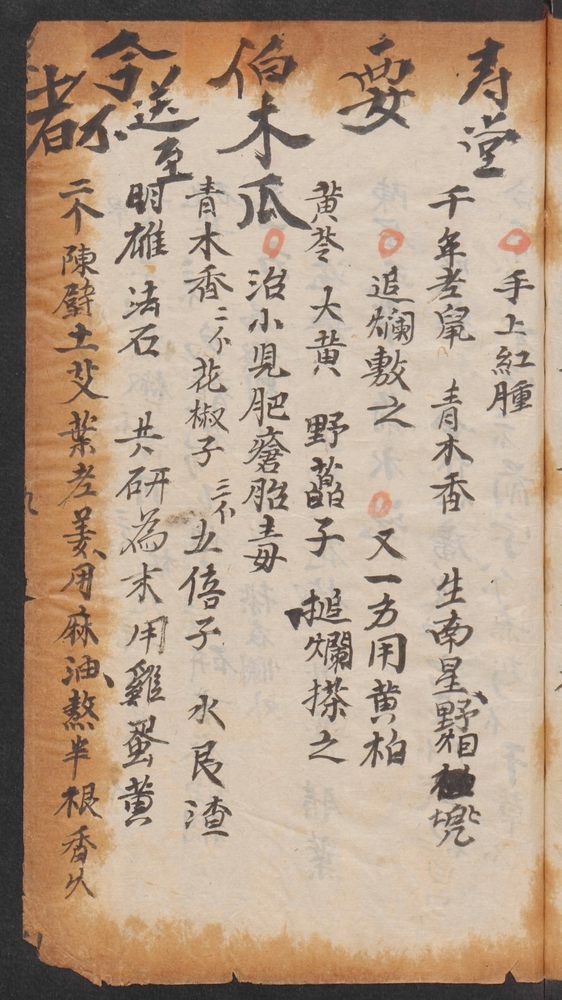 寿堂
要
伯木瓜
令送至
者不
手上紅腫
千年老鼠 青木香 生南星 野 兜
追爛敷之 又一方用黄柏
黄芩 大黄 野 子 搥爛搽之
治小児肥瘡胎毒
青木香二个 花椒子三个 五倍子 水艮渣
明雄 活石 共研為末用雞蛋黄
二个陳壁土艾葉老姜用麻油熬半根香久